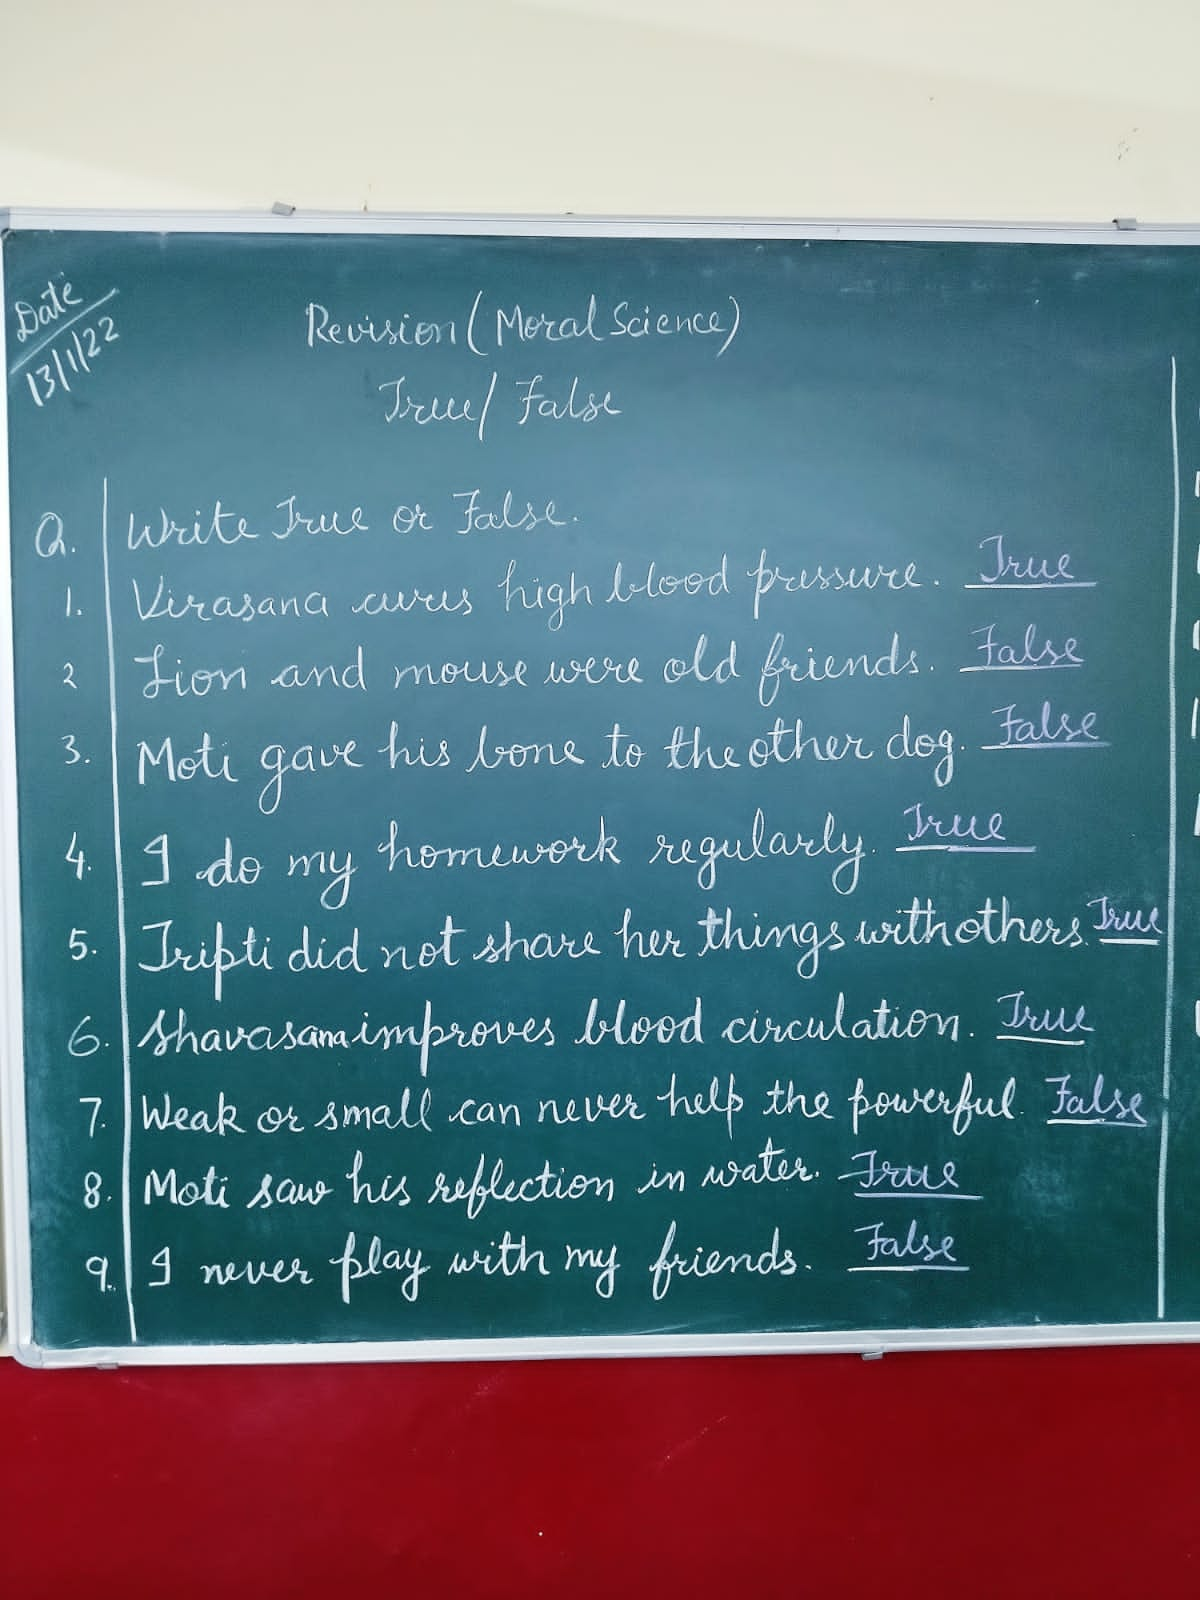 Date
13/1/22
Revision (Moral Science)
True/ False
Q. Write True or False.
1. Virasana cures high blood pressure. True
2 Lion and mouse were old friends. False
3. Moti gave his bone to the other dog. False
4. I do my homework regularly. True
5. Tripti did not share her things with others. True
6. Shavasana improves blood circulation. True
7. Weak or small can never help the powerful. False
8. Moti saw his reflection in water. True
9. I never play with my friends. False